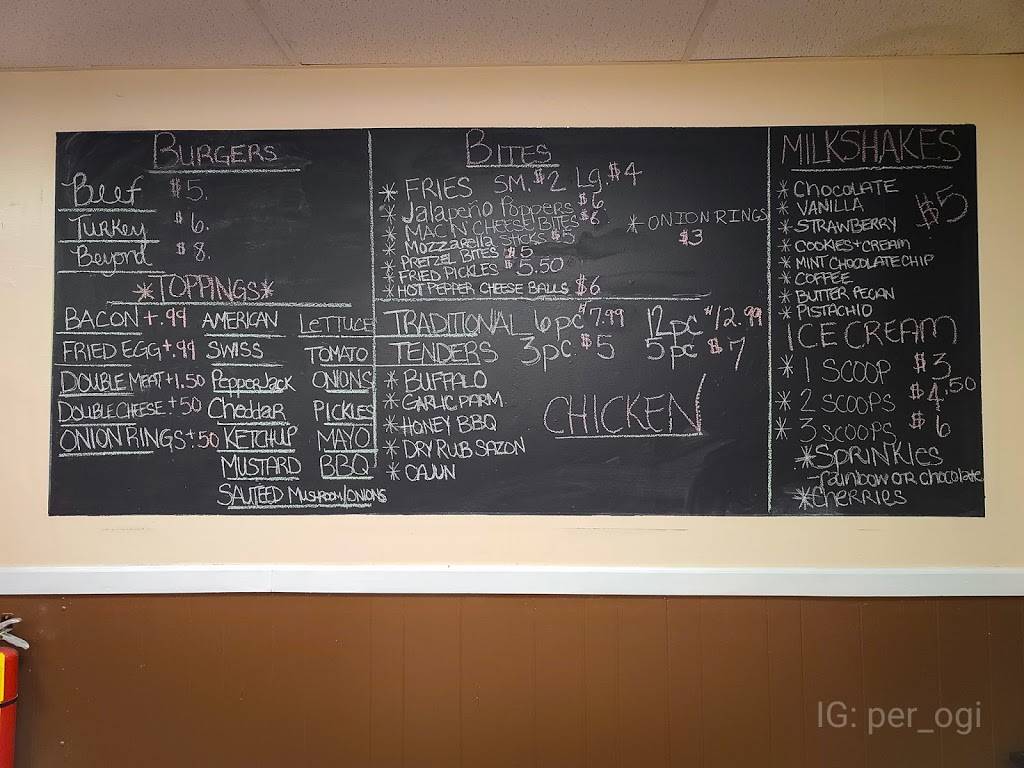 BURGERS
Beef $5.
Turkey $6.
Beyond $8.
*TOPPINGS*
BACON +.99 AMERICAN LETTUCE
FRIED EGG +.99 SWISS TOMATO
DOUBLE MEAT +1.50 PepperJack ONIONS
DOUBLE CHEESE +50 Cheddar PICKLES
ONION RINGS +.50 KETCHUP MAYO
MUSTARD BBQ
SAUTEED MUSHROOM/ONIONS
BITES
* FRIES SM. $2 Lg. $4
* Jalapeño Poppers $6
* MAC N' CHEESE BITES $6
* Mozzarella STICKS $5
* PRETZEL BITES $5
* FRIED PICKLES $5.50
* HOT PEPPER CHEESE BALLS $6
* ONION RINGS
$3
TRADITIONAL 6pc $7.99 12pc $12.99
TENDERS 3pc $5 5pc $7
* BUFFALO
* GARLIC PARM.
* HONEY BBQ
* DRY RUB SAZON
* CAJUN
CHICKEN
MILKSHAKES
* CHOCOLATE
* VANILLA
* STRAWBERRY
* COOKIES+CREAM
* MINT CHOCOLATE CHIP
* COFFEE
* BUTTER PECAN
* PISTACHIO
$5
ICE CREAM
* 1 SCOOP $3
* 2 SCOOPS $4.50
* 3 SCOOPS $6
*Sprinkles
-rainbow or chocolate
*Cherries
IG: per_ogi